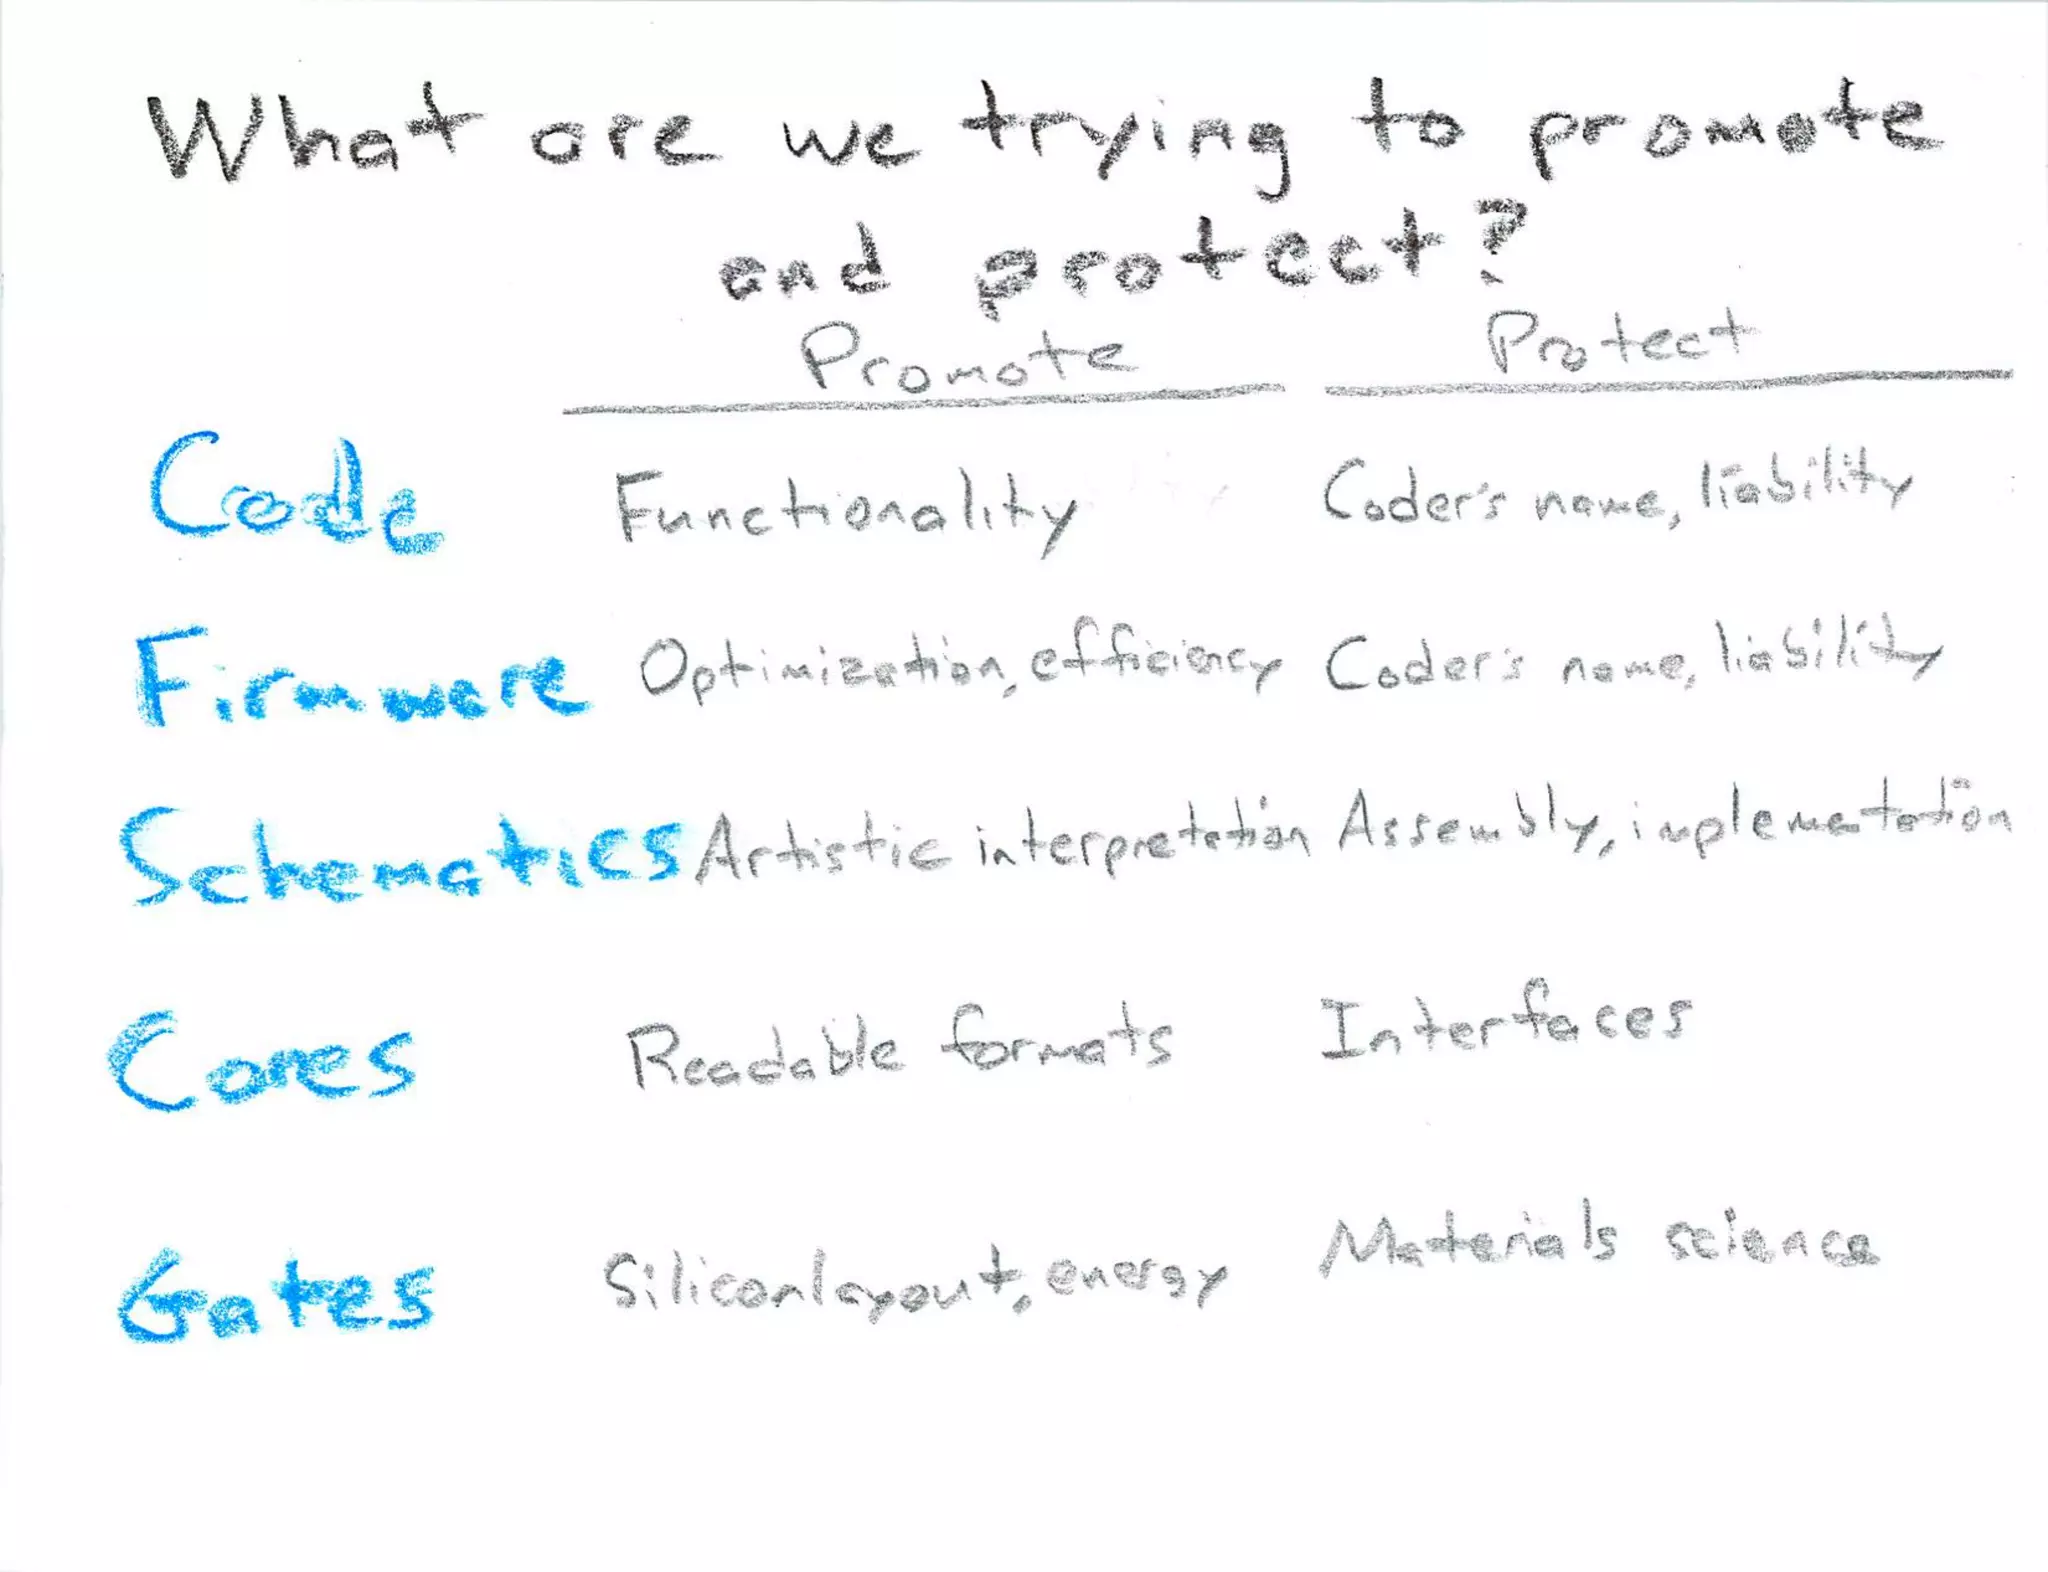 What are we trying to promote
and protect?
Promote Protect
Code Functionality Coder's name, liability
Firmware Optimization, efficiency Coder's name, liability
Schematics Artistic interpretation Assembly, implementation
Cores Readable formats Interfaces
Gates Silicon layout, energy Materials science